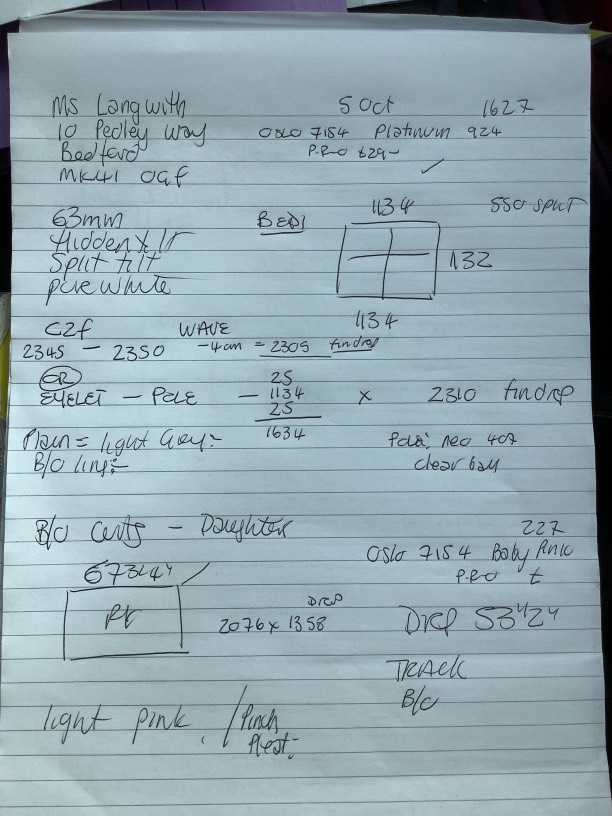 MS Langwith 5 Oct 1627
10 Pedley Way Oslo 7154 Platinum 924
Bedford P.RO 629-
MK41 0GF
63mm BED1 1134 550 split
Hidden tilt
Split tilt 1132
pure white
1134
C2f WAVE
2345 - 2350 -4cm = 2305 findrop
OR 25
EYELET - POLE - 1134 x 2310 findrop
25
Plain = light Grey:- 1634 Pole: neo 407
B/O ling:- clear ball
B/O Certs - Daughter 227
Oslo 7154 Baby Pink
P.RO t
Drop
2076 x 1358 Drop 53"/2"
TRACK
B/O
light pink. / Pinch
Pleat: